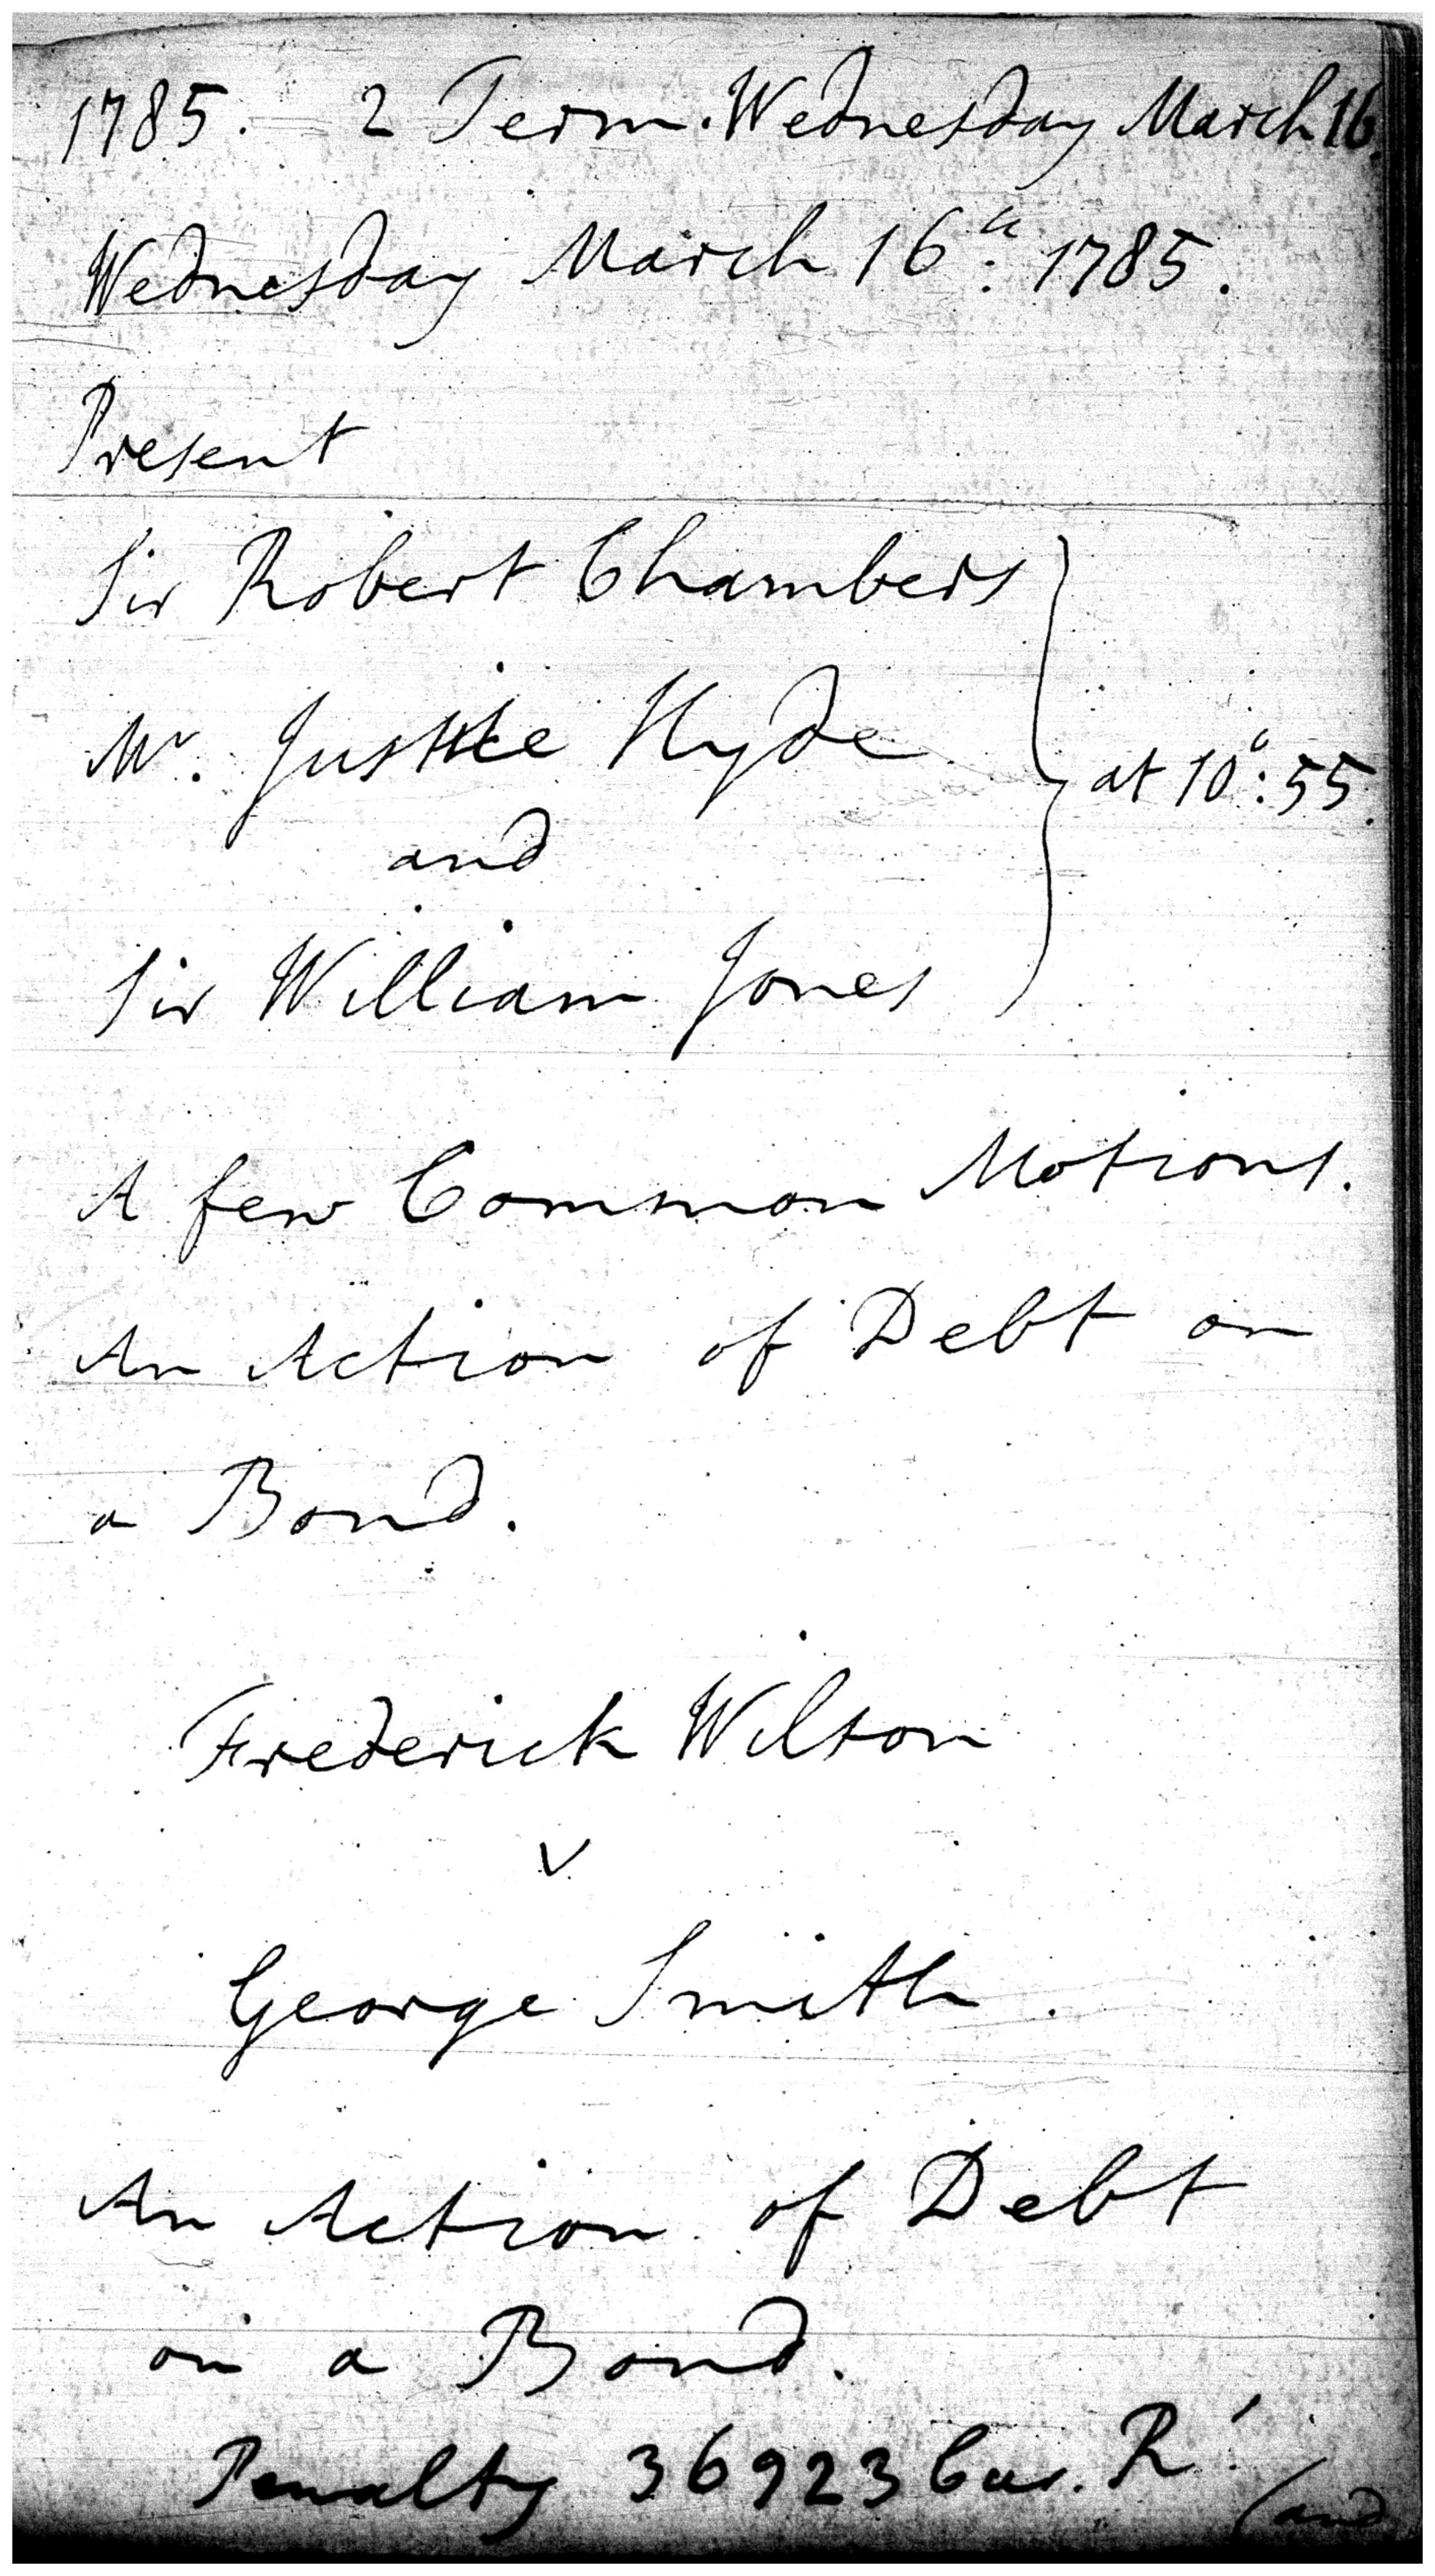 1785. 2 Term. Wednesday March 16.
Wednesday March 16th: 1785.
Present
Sir Robert Chambers
Mr. Justice Hyde
at 10°: 55.
and
Sir William Jones
A few Common Motions.
An Action of Debt on
a Bond.
Frederick Wilson
v
George Smith.
An Action of Debt
on a Bond.
Penalty 36923 Cur. Rs.
(and